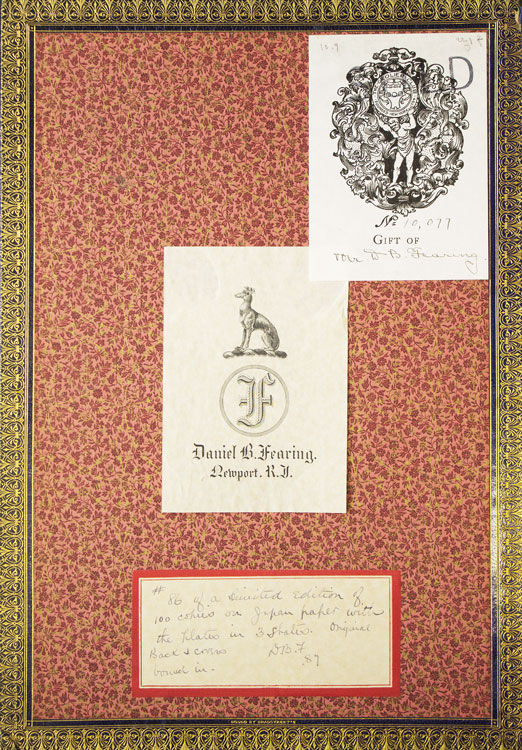 10.9
D
No 10,077
GIFT OF
Mr D B. Fearing.
F
Daniel B. Fearing.
Newport. R.I.
# 86 of a Limited Edition of
100 copies on Japan paper with
the plates in 3 States. Original
Back & covers D.B.F
bound in. 87